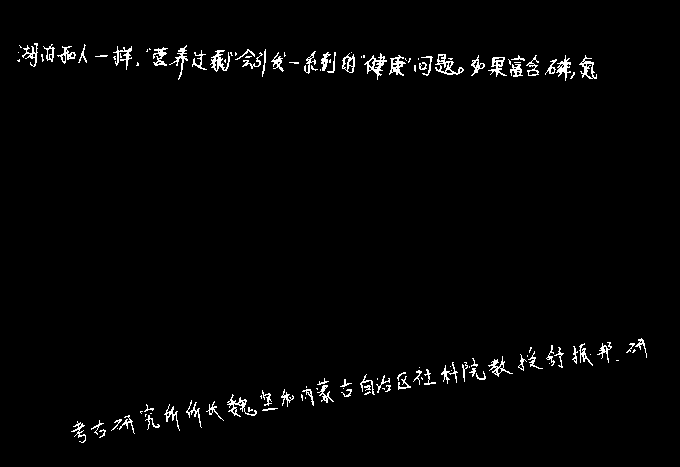 湖泊和人一样,“营养过剩”会引发一系列的“健康”问题。如果富含磷,氮
考古研究所所长魏坚和内蒙古自治区社科院教授舒振邦.研